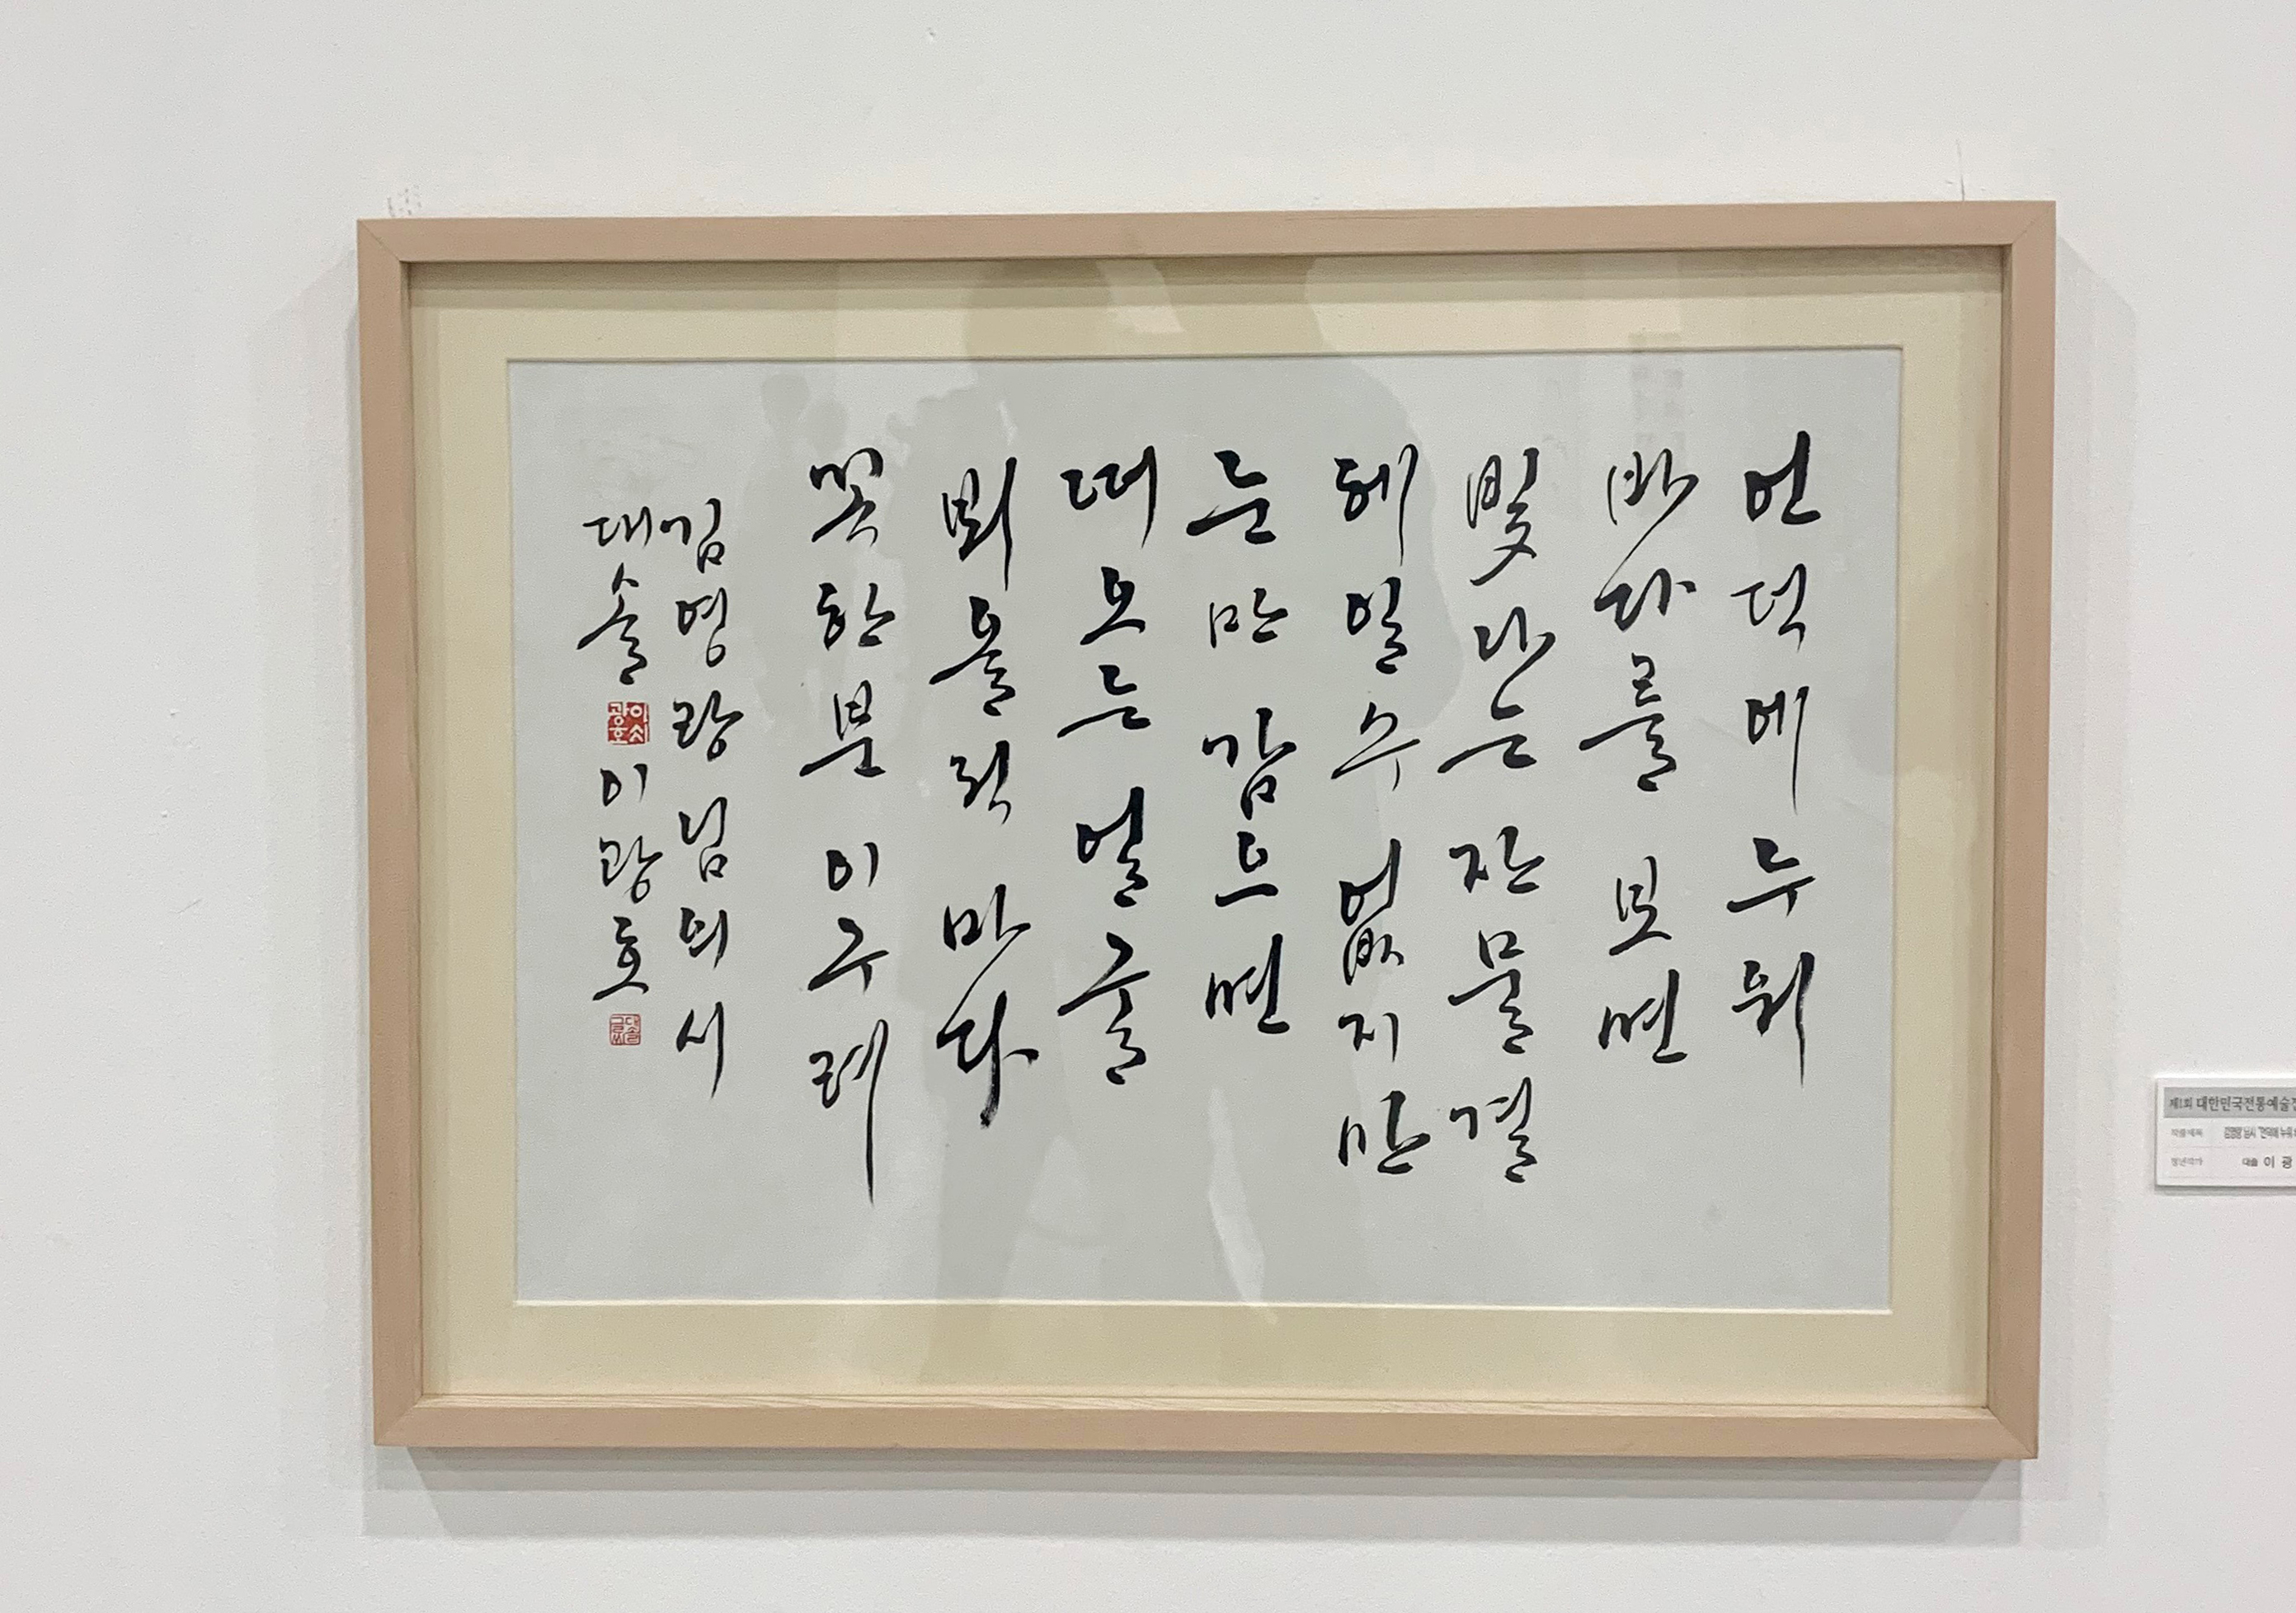 언덕에 누워
바다를 보면
빛나는 잔물결
헤일수 없지만
눈만 감으면
떠오는 얼굴
뵈올적 마다
꽃한분 이구려
김영랑 님의 시
대솔 이광호
제1회 대한민국전통예술전
작품제목 김영랑 님시 "언덕에 누워
대솔 이 광